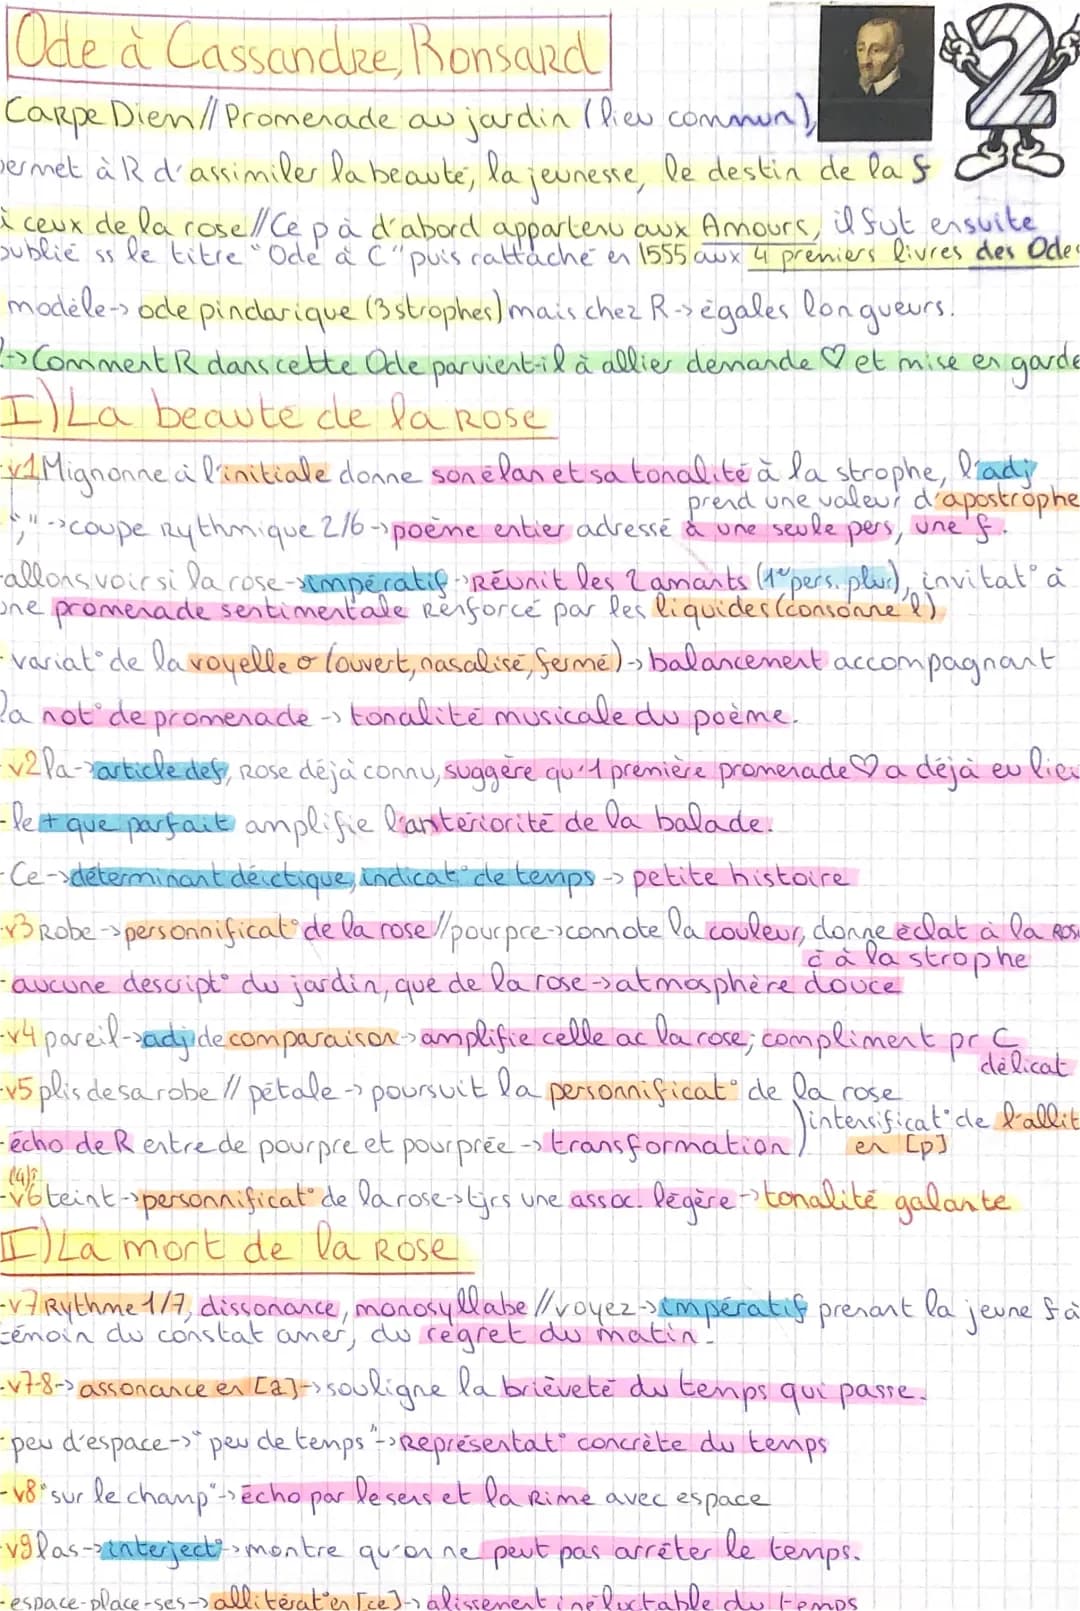 Ode à Cassandre, Ronsard
2
Carpe Dien // Promenade au jardin (lieu commun),
permet à R d'assimiler la beauté, la jeunesse, le destin de la f
à ceux de la rose // Ce p à d'abord appartenu aux Amours, il fut ensuite
publié ss le titre "Ode à C" puis rattaché en 1555 aux 4 premiers livres des Odes
modèle-> ode pindarique (3 strophes) mais chez R -> égales longueurs.
-> Comment R dans cette Ode parvient-il à allier demande ♡ et mise en garde
I) La beauté de la rose
-v1 Mignonne à l'initiale donne son élan et sa tonalité à la strophe, l'adj
prend une valeur d'apostrophe
"," -> coupe rythmique 2/6 -> poème entier adressé à une seule pers, une f.
-allons voir si la rose -> impératif -> Réunit les 2 amants (1e pers. plur), invitat° à
une promenade sentimentale Renforcé par les liquides (consonne l)
-variat° de la voyelle o (ouvert, nasalisé, fermé) -> balancement accompagnant
la not° de promenade -> tonalité musicale du poème.
-v2 la -> article def, Rose déjà connu, suggère qu'1 première promenade ♡ a déjà eu lieu
-le + que parfait amplifie l'antériorité de la balade.
-Ce -> déterminant déictique, indicat° de temps -> petite histoire
-v3 Robe -> personnificat° de la rose // pourpre -> connote la couleur, donne éclat à la Rose
c à la strophe
-aucune descript° du jardin, que de la rose -> atmosphère douce
-v4 pareil -> adj de comparaison -> amplifie celle ac la rose; compliment pr C
délicat
-v5 plis de sa robe // pétale -> poursuit la personnificat° de la rose
) intensificat° de l'allit
-écho de R entre de pourpre et pourprée -> transformation) en [p]
(4)?
-v6 teint -> personnificat° de la rose -> tjrs une assoc. légère -> tonalité galante
II) La mort de la Rose
-v7 Rythme 1/7, dissonance, monosyllabe // voyez -> impératif prenant la jeune f à
témoin du constat amer, du regret du matin.
-v7-8 -> assonance en [a] -> souligne la brièveté du temps qui passe.
-peu d'espace -> "peu de temps" -> Représentat° concrète du temps
-v8 "sur le champ" -> écho par le sens et la Rime avec espace
-v9 las -> interject° -> montre qu'on ne peut pas arrêter le temps.
-espace-place-ses -> allitérat° en [ce] -> glissement inéluctable du temps